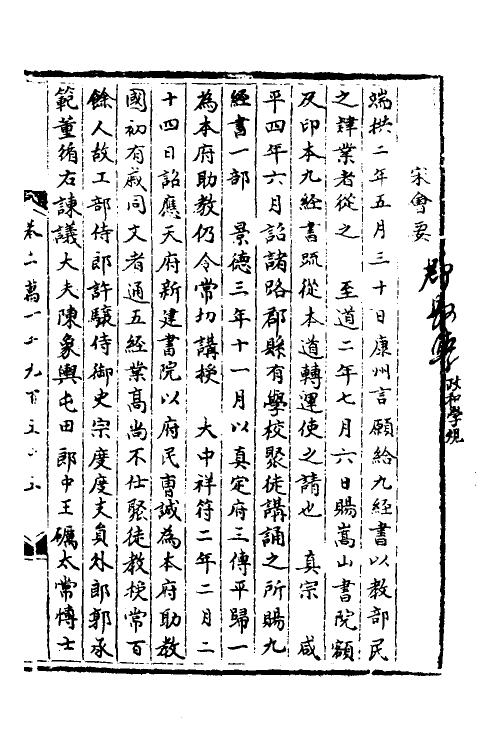 宋會要
郡縣學 政和學規
端拱二年五月三十日康州言願給九經書以教部民
之肄業者從之　至道二年七月六日賜嵩山書院額
及印本九經書疏從本道轉運使之請也　真宗　咸
平四年六月詔諸路郡縣有學校聚徒講誦之所賜九
經書一部　景德三年十一月以真定府三傳平歸一
為本府助教仍令常切講授　大中祥符二年二月二
十四日詔應天府新建書院以府民曹誠為本府助教
國初有戚同文者通五經業高尚不仕聚徒教授常百
餘人故工部侍郎許驤侍御史宗度度支員外郎郭承
範董循右諫議大夫陳象輿屯田郎中王礪太常博士